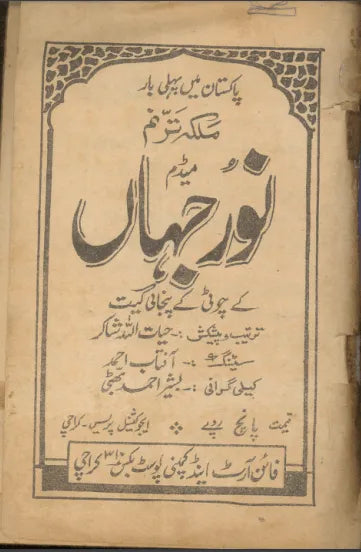 پاکستان میں پہلی بار
ملکہ ترنم
میڈم
نور جہاں
کے چوٹی کے پنجابی گیت
ترتیب و پیشکش :- حیات اللہ شاکر
سیٹنگ :- آفتاب احمد
کیلی گرافی :- بشیر احمد بھٹی
قیمت پانچ روپے ایجوکیشنل پریس - کراچی
فائن آرٹ اینڈ کمپنی پوسٹ بکس کراچی